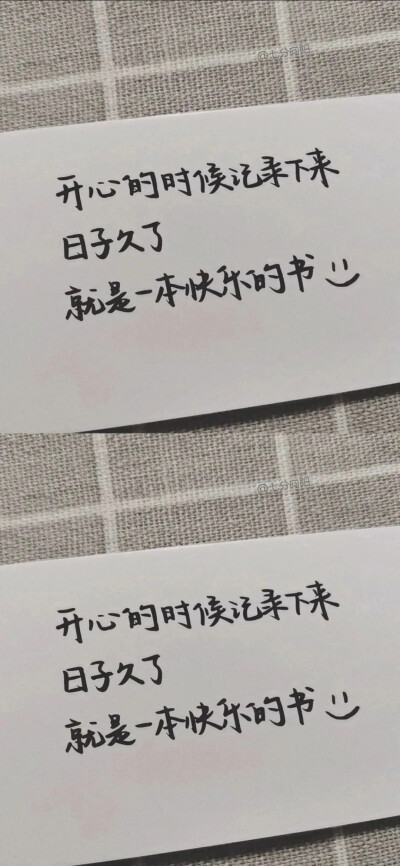 开心的时候记录下来
日子久了
就是一本快乐的书
开心的时候记录下来
日子久了
就是一本快乐的书